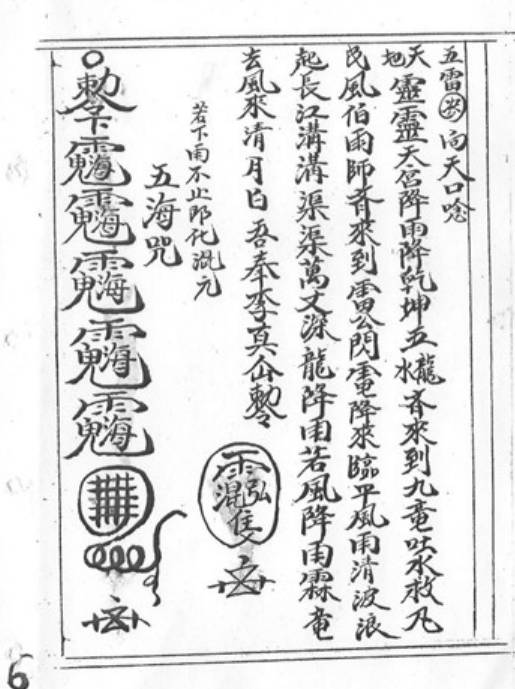 五雷㘯向天口唸
天地靈靈天宮降雨降乾坤五水龍斉來到九竜吐水救凡
民風伯雨師斉來到雷公閃電降來臨平風雨清波浪
起長江溝溝渠渠萬丈深龍降雨若風降雨霖竜
去風來清月白吾奉李真仙勅令
若下雨不止即化混元
五海咒
勅令
海
海
海
海
海
6